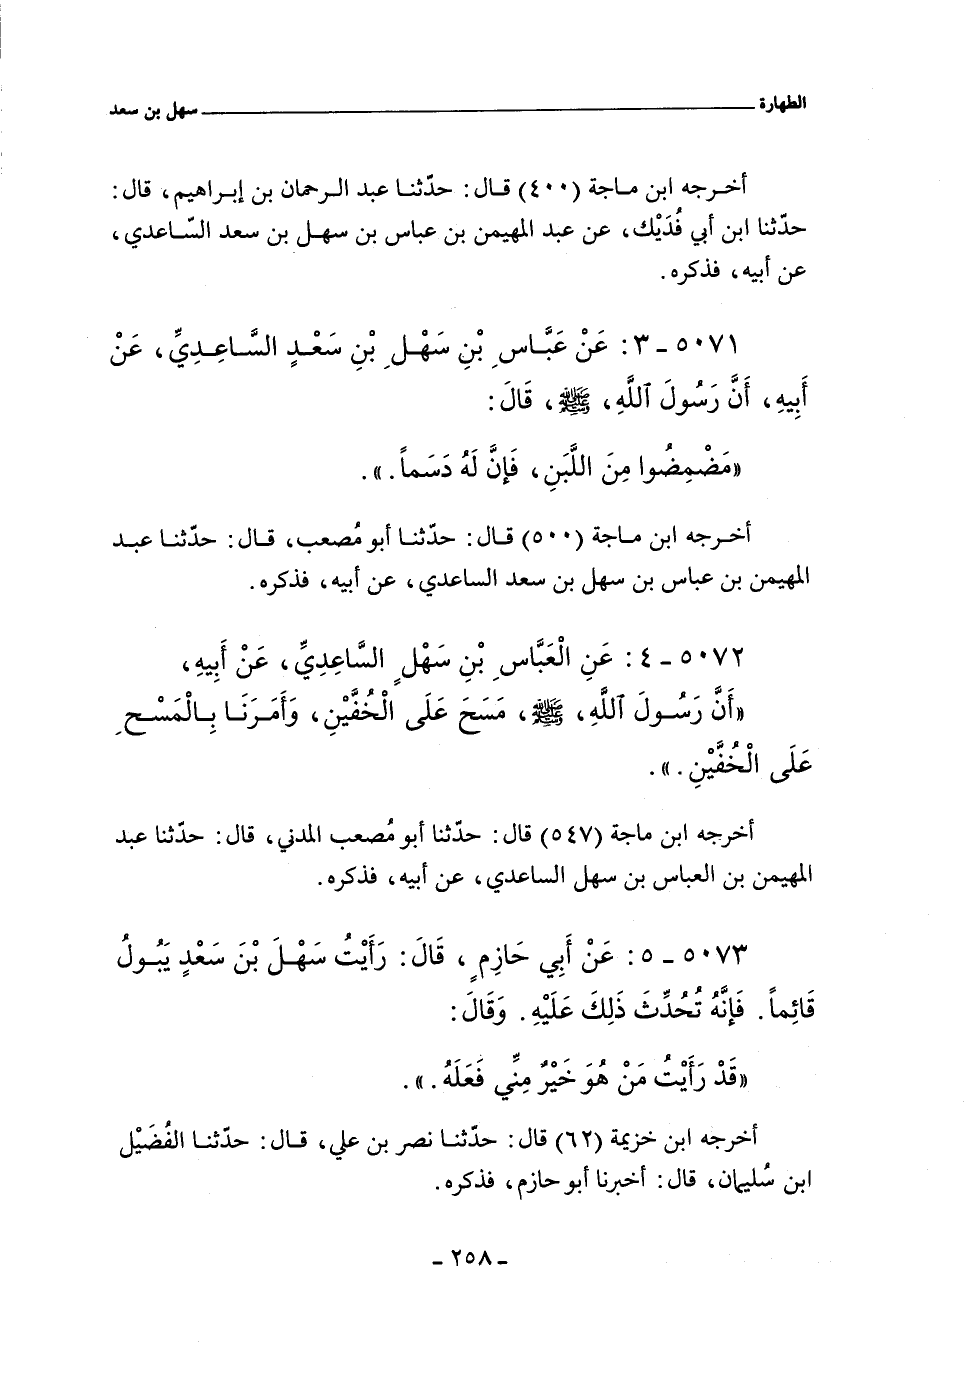 الطهارة ـــــــ سهل بن سعد
أخرجه ابن ماجة (٤٠٠) قال: حدّثنا عبد الرحمان بن إبراهيم، قال:
حدّثنا ابن أبي فُدَيْك، عن عبد المهيمن بن عباس بن سهل بن سعد السّاعدي،
عن أبيه، فذكره.
٥٠٧١ ـ ٣: عَنْ عَبَّاسِ بْنِ سَهْلِ بْنِ سَعْدٍ السَّاعِدِيِّ، عَنْ
أَبِيهِ، أَنَّ رَسُولَ ٱللَّهِ، ﷺ، قَالَ:
«مَضْمِضُوا مِنَ اللَّبَنِ، فَإِنَّ لَهُ دَسَماً.».
أخرجه ابن ماجة (٥٠٠) قال: حدّثنا أبو مُصعب، قال: حدّثنا عبد
المهيمن بن عباس بن سهل بن سعد الساعدي، عن أبيه، فذكره.
٥٠٧٢ ـ ٤: عَنِ الْعَبَّاسِ بْنِ سَهْلٍ السَّاعِدِيِّ، عَنْ أَبِيهِ،
«أَنَّ رَسُولَ ٱللَّهِ، ﷺ، مَسَحَ عَلَى الْخُفَّيْنِ، وَأَمَرَنَا بِالْمَسْحِ
عَلَى الْخُفَّيْنِ.».
أخرجه ابن ماجة (٥٤٧) قال: حدّثنا أبو مُصعب المدني، قال: حدّثنا عبد
المهيمن بن العباس بن سهل الساعدي، عن أبيه، فذكره.
٥٠٧٣ ـ ٥: عَنْ أَبِي حَازِمٍ، قَالَ: رَأَيْتُ سَهْلَ بْنَ سَعْدٍ يَبُولُ
قَائِماً. فَإِنَّهُ تُحُدِّثَ ذَلِكَ عَلَيْهِ. وَقَالَ:
«قَدْ رَأَيْتُ مَنْ هُوَ خَيْرٌ مِنِّي فَعَلَهُ.».
أخرجه ابن خزيمة (٦٢) قال: حدّثنا نصر بن علي، قال: حدّثنا الفُضَيْل
ابن سُليمان، قال: أخبرنا أبو حازم، فذكره.
ـ ٢٥٨ ـ